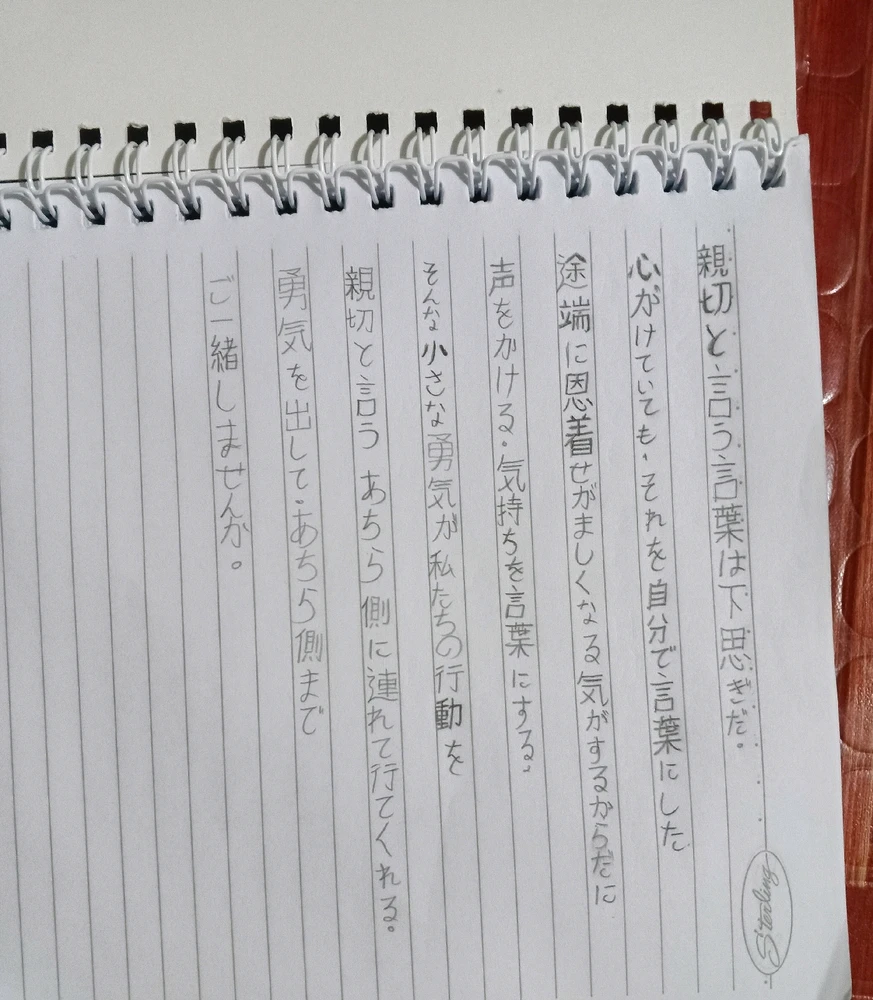 親切と言う言葉は下思ぎだ。
心がけていても、それを自分で言葉にした
途端に恩着せがましくなる気がするからだに
声をかける。気持ちを言葉にする。
そんな小さな勇気が私たちの行動を
親切と言う あちら側に連れて行てくれる。
勇気を出して、あちら側まで
ご一緒しませんか。
Sterling